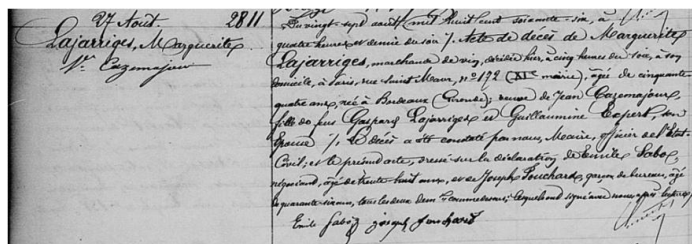 27 Août. 2811
Lajarriges, Marguerite
Ve Cazemajour
Du vingt sept août mil huit cent soixante-six, à
quatre heures et demie du soir /. Acte de décès de Marguerite
Lajarriges, marchande de vin, décédée hier, à cinq heures du soir, à son
domicile, à Paris, rue Saint Maur, no 172 (XIe mairie), âgée de cinquante
quatre ans, née à Bordeaux (Gironde); veuve de Jean Cazemajour,
fille de feu Gaspard Lajarriges et Guillaumine Expert, son
épouse /. Le décès a été constaté par nous, Maire, officier de l'Etat-
Civil; et le présent acte, dressé sur la déclaration de Emile Sabo,
négociant, âgé de trente-huit ans, et de Joseph Fouchard, garçon de bureau, âgé
de quarante-six ans, tous les deux, lesquels ont signé avec nous après lecture /.
Emile Sabo joseph fouchard